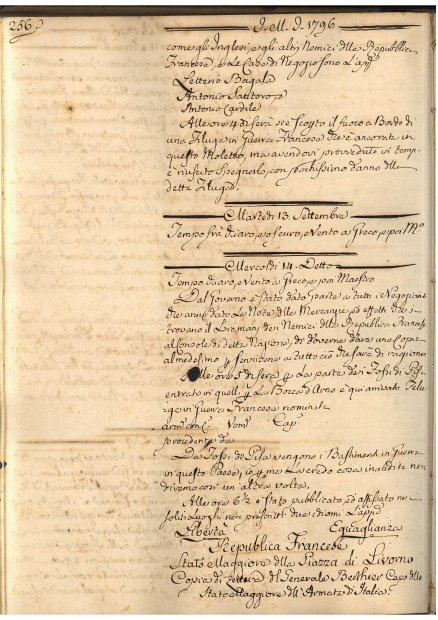 256.
I. ell. I. 1796
come gli Inglesi, e gli altri Nemici della Repubblica
Francese, e le Case di Negozio sono
Letterio Bagalà
Antonio Santoro
Antonio Cardile
Alle ore 4 di sera si è scoperto il fuoco a Bordo di
una Filuga in Guerra Francese che è ancorata in
questo Moletto, ma avendovi provveduto in tempo
è riuscito spegnerlo, con pochissimo danno della
detta Filuga.
Martedì 13. Settembre
Tempo frà chiaro, e oscuro, e Vento a Greco, e poi
Mercoldì 14. Detto
Tempo chiaro, e Vento a Greco, e poi Maestro
Dal Governo è stato dato parte a tutti i Negozianti
che anno dato Le Note delle Mercanzie, ed effetti che si
trovano in Loro mani dei Nemici della Repubblica Francese
al Console di detta Nazione, di doverne dare una Copia
al medesimo
Alle ore 5 di sera per La parte dei Fossi di Pisa
entrato in quelli per La Bocca d'Arno è qui arrivato
in Guerra Francese nominate
Nom. Cap.
provenienti da
Da Fossi di Pisa vengono i Bastimenti in Guerra
in questo Paese, per me La credo cosa inaudita non
un'altra volta.
Alle ore 6½ è stato pubblicato ed affissato ne
soliti Luoghi nei presenti due idiomi
Libertà Eguaglianza
Republica Francese
Stato Maggiore della Piazza di Livorno
Copia di Lettera del Generale Berthier Capo dello
Stato Maggiore dell'Armata d'Italia